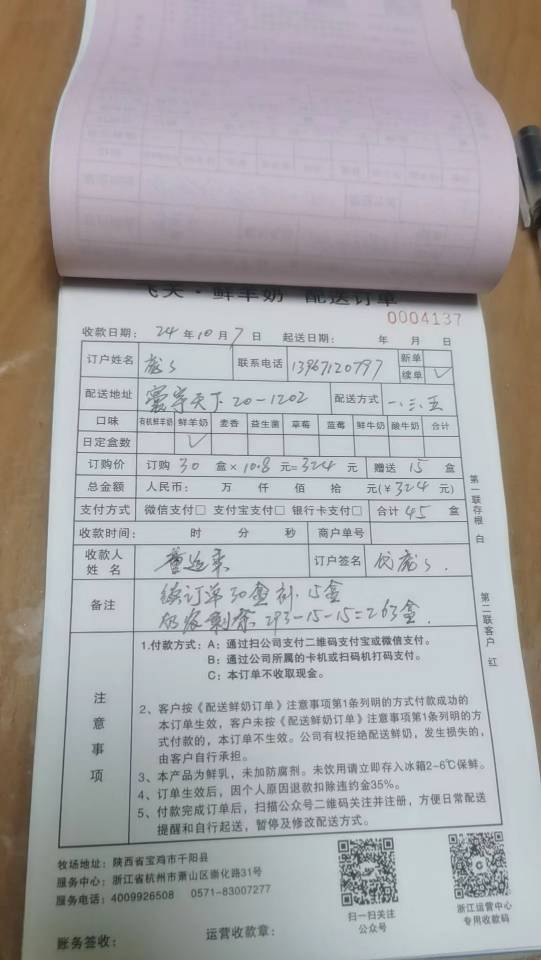 飞天·鲜羊奶 配送订单
0004137
收款日期: 24 年 10 月 7 日 起送日期: 年 月 日
订户姓名 联系电话 13967120797 新单
续单 ✓
配送地址 寰宇天下 20-1202 配送方式 一.三.五
口味 有机鲜羊奶 鲜羊奶 麦香 益生菌 草莓 蓝莓 鲜牛奶 酸牛奶 合计
日定盒数 ✓
订购价 订购 30 盒×10.8 元=324 元 赠送 15 盒
总金额 人民币: 万 仟 佰 拾 元(¥324 元)
支付方式 微信支付□ 支付宝支付□ 银行卡支付□ 合计 45 盒
收款时间: 时 分 秒 商户单号
收款人
姓名 订户签名
备注 续订单30盒 15盒
剩余 293-15-15=263盒.
第一联存根 白
第二联客户 红
注意事项
1.付款方式: A: 通过扫公司支付二维码支付宝或微信支付。
B: 通过公司所属的卡机或扫码机打码支付。
C: 本订单不收取现金。
2、客户按《配送鲜奶订单》注意事项第1条列明的方式付款成功的
本订单生效, 客户未按《配送鲜奶订单》注意事项第1条列明的方
式付款的, 本订单不生效。公司有权拒绝配送鲜奶, 发生损失的,
由客户自行承担。
3、本产品为鲜乳, 未加防腐剂。未饮用请立即存入冰箱2-6℃保鲜。
4、订单生效后, 因个人原因退款扣除违约金35%。
5、付款完成订单后, 扫描公众号二维码关注并注册, 方便日常配送
提醒和自行起送, 暂停及修改配送方式。
牧场地址: 陕西省宝鸡市千阳县
服务中心: 浙江省杭州市萧山区崇化路31号
服务电话: 4009926508 0571-83007277
扫一扫关注
公众号
浙江运营中心
专用收款码
账务签收: 运营收款章: